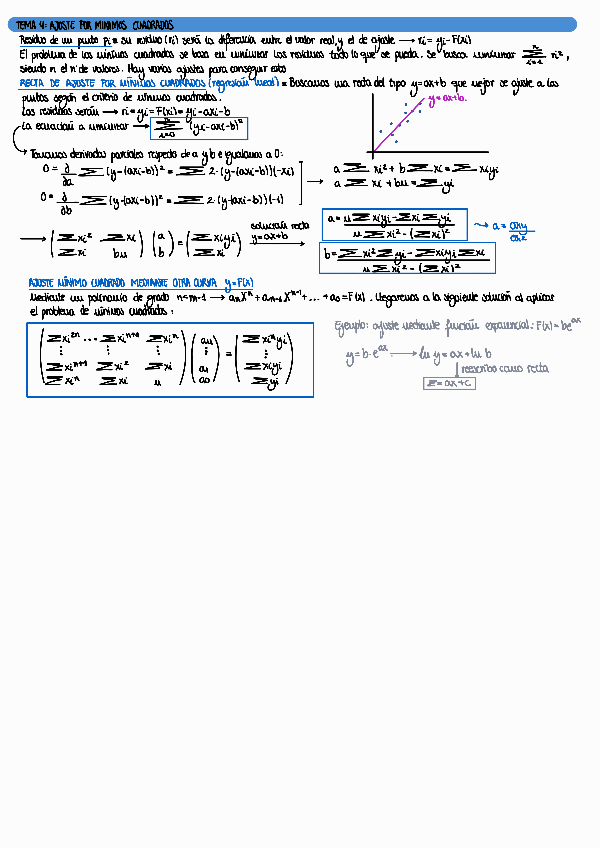 TEMA 4: AJUSTE POR MINIMOS CUADRADOS
Residuo de un punto Pi = su residuo (ri) será la diferencia entre el valor real, y el de ajuste → ri = yi - F(xi)
El problema de los mínimos cuadrados se basa en minimizar los residuos todo lo que se pueda. Se busca minimizar Σ ri²,
siendo n el nº de valores. Hay varios ajustes para conseguir esto
RECTA DE AJUSTE POR MÍNIMOS CUADRADOS (regresión lineal) = Buscamos una recta del tipo y=ax+b que mejor se ajuste a los
puntos según el criterio de mínimos cuadrados.
y=ax+b.
Los residuos serán → ri = yi - F(xi) = yi - axi - b
La ecuación a minimizar → Σ (yi-axi-b)²
i=0
→ Tomamos derivadas parciales respecto de a y b e igualamos a 0:
0 = ∂/∂a Σ (y-(axi-b))² = Σ 2·(y-(axi-b))(-xi)
0 = ∂/∂b Σ (y-(axi-b))² = Σ 2·(y-(axi-b))(-1)
→ a Σ xi² + b Σ xi = Σ xiyi
a Σ xi + bn = Σ yi
→ (Σxi² Σxi / Σxi bn) (a / b) = (Σxiyi / Σxi)
solución recta
y=ax+b
a = (n Σxiyi - Σxi Σyi) / (n Σxi² - (Σxi)²)
→ a = σxy / σx²
b = (Σxi² Σyi - Σxiyi Σxi) / (n Σxi² - (Σxi)²)
AJUSTE MÍNIMO CUADRADO MEDIANTE OTRA CURVA y=F(x)
Mediante un polinomio de grado n=m-1 → anXⁿ + an-1Xⁿ⁻¹ + ... + a0 = F(x). Llegaremos a la siguiente solución al aplicar
el problema de mínimos cuadrados:
Σxi²ⁿ ... Σxiⁿ⁺¹ Σxiⁿ an Σxiⁿyi
⋮ ⋮ ⋮ ⋮ ⋮
Σxiⁿ⁺¹ Σxi² Σxi a1 = Σxiyi
Σxiⁿ Σxi n a0 Σyi
Ejemplo: ajuste mediante función exponencial: F(x) = be^ax
y = b·e^ax → ln y = ax + ln b
reescribo como recta
z = ax + c